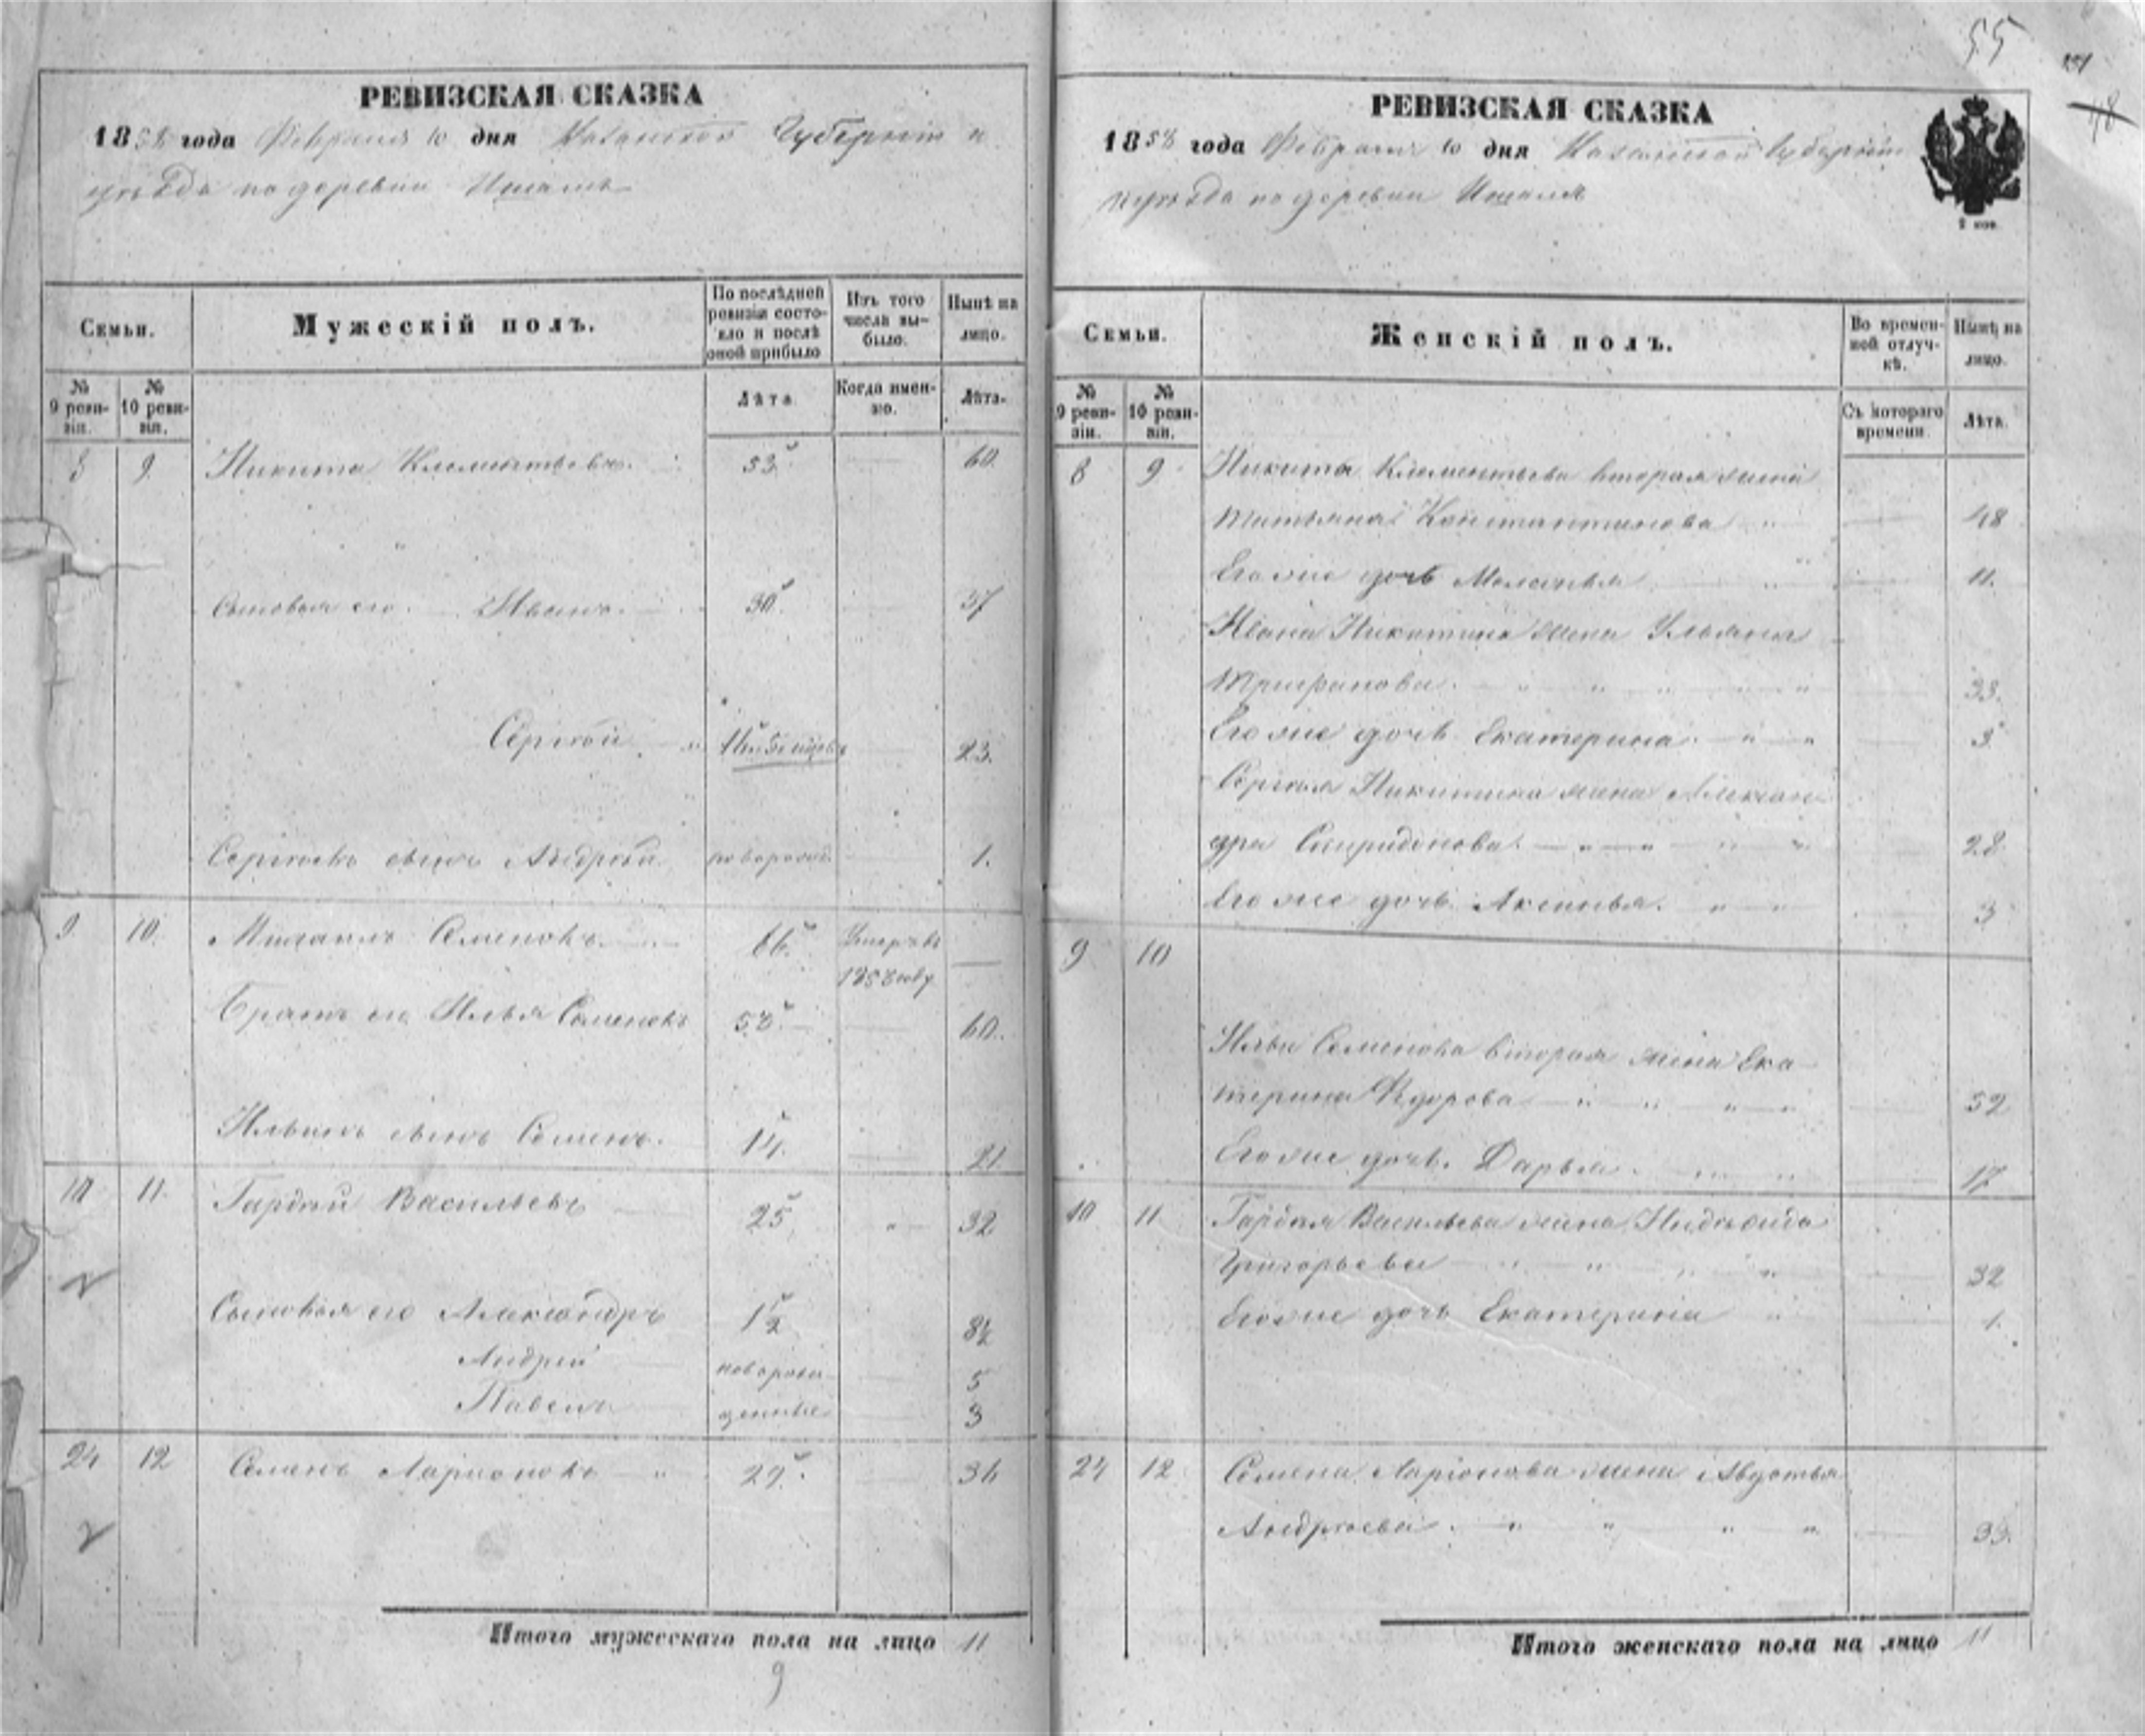 РЕВИЗСКАЯ СКАЗКА
1858 года Февраля 10 дня Казанской Губерніи и
уѣзда по деревни
Семьи.
Мужескій полъ.
По послѣдней ревизіи состояло и послѣ оной прибыло
Изъ того числа выбыло.
Нынѣ на лицо.
№ 9 ревизіи.
№ 10 ревизіи.
Лѣта
Когда именно.
Лѣта.
8 9. Никита Клементьевъ. 53 60
Сыновья его. Иванъ. 30 37
Сергѣй 23.
Сергѣевъ сынъ Андрей новорожд. 1.
9 10. Михаилъ Семеновъ. 66. Умеръ въ
году
Братъ его Илья Семеновъ 53. 60.
Ильинъ сынъ Семенъ. 14. 21.
10 11. Гардѣй Васильевъ 25 32
Сыновья его Александръ 1½ 8½
Андрей новорож- 5
Павелъ денные 3
24 12 Семенъ Ларионовъ 29. 36
Итого мужескаго пола на лицо 11
9
55
РЕВИЗСКАЯ СКАЗКА
1858 года Февраля 10 дня Казанской Губерніи
и уѣзда по деревни
2 коп.
Семьи.
Женскій полъ.
Во временной отлучкѣ.
Нынѣ на лицо.
№ 9 ревизіи.
№ 10 ревизіи.
Съ котораго времени.
Лѣта.
8 9 Никиты Клементьева вторая жена
Татьяна Константинова 48
Его же дочь Маланья 11.
Ивана Никитина жена Ульяна
Трифанова. 33.
Его же дочь Екатерина. 3
Сергѣя Никитина жена Алексан-
дра Спиридонова. 28.
Его же дочь Аксинья. 3
9 10
Ильи Семенова вторая жена Ека-
терина Ѳедорова 52
Его же дочь. Дарья. 17
10 11 Гардѣя Васильева жена
Григорьева 32
Его же дочь Екатерина 1.
24 12 Семена Ларіонова жена Авдотья
Андреева. 33.
Итого женскаго пола на лицо 11